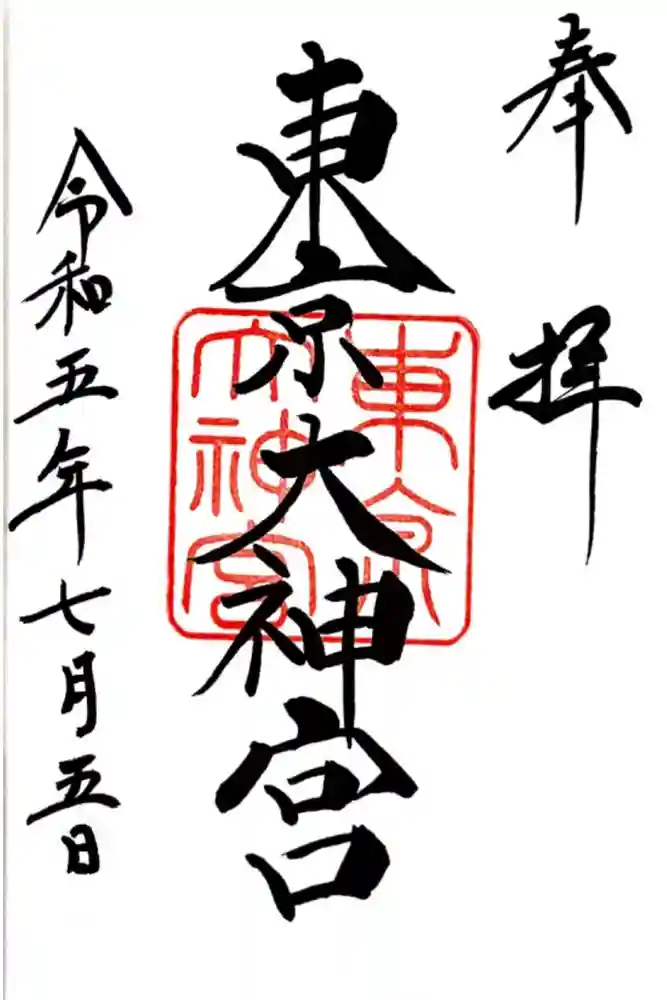 奉拝
東京大神宮
東京大神宮
令和五年七月五日